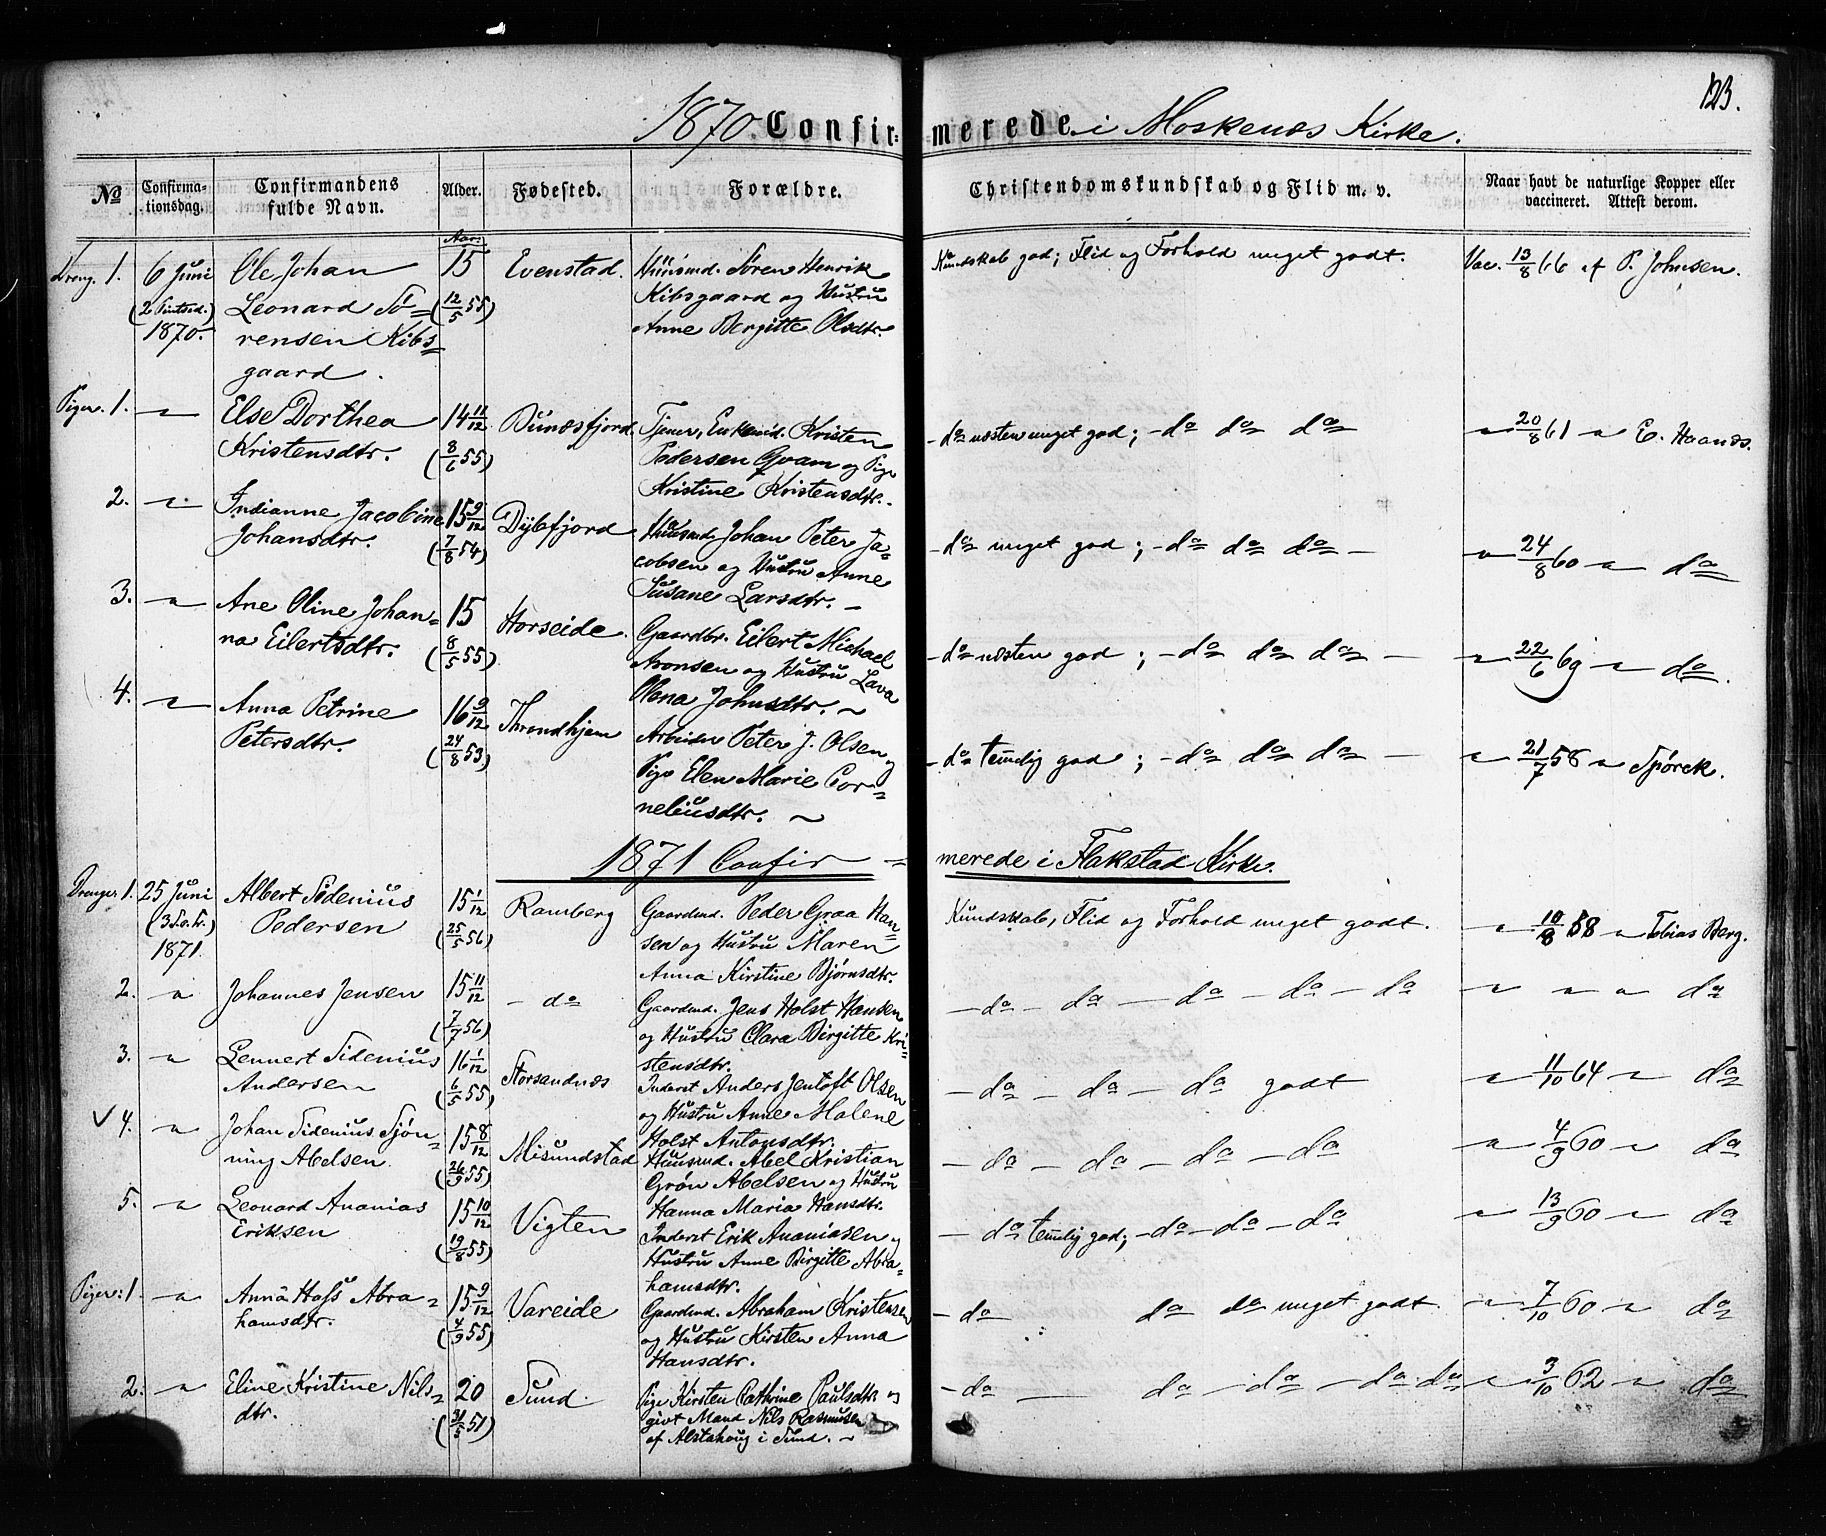 123.
1870. Confir= merede i Moskenæs Kirke.
No
Confirma-
tionsdag.
Confirmandens
fulde Navn.
Alder.
Fødested.
Forældre.
Christendomskundskab og Flid m. v.
Naar havt de naturlige Kopper eller
vaccineret. Attest derom.
Aar.
Dreng. 1. 6 Juni Ole Johan 15 Evenstad. Huusmd. Sören Henrik Kundskab god; Flid og Forhold meget godt. Vac. 13/8 66 af P. Johnsen.
(2 Pintsed.) Leonard Sö= (12/5 55) Kibsgaard og Hustru
1870. rensen Kibs= Anne Bergitte Olsdtr.
gaard.
Piger. 1. " Else Dorthea 14 11/12 Sunds­fjord. Tjener, Enkemd. Kristen - do næsten meget god; - do do do " 20/8 61 " E. Haands.
Kristensdtr. (8/6 55) Pedersen Qvam og Pige
Kristine Kristensdtr.
2. " Indianne Jacobine 15 9/12 Dybfjord Huusmd. Johan Peter Ja= - do meget god; - do do do - " 24/8 60 " do
Johansdtr. (7/8 54) cobsen og Hustru Anne
Susane Larsdtr. -
3. " Ane Oline Johan= 15 Horseide. Gaardbr. Eilert Michael - do næsten god; - do do do - " 22/6 69 " do.
na Eilertsdtr. (8/5 55) Aronsen og Hustru Lava
Olena Johnsdtr. ~
4. " Anna Petrine 16 9/12 Throndhjem Arbeider Peter J. Olsen og - do temlig god; - do do do - " 21/7 58 " Spörck.
Petersdtr. (24/8 53) Pige Elen Marie Cor=
neliusdtr. ~
1871 Confir= merede i Flakstad Kirke.
Drenger 1. 25 Juni Albert Sidenius 15 1/12 Ramberg Gaardmd. Peder Graa Han= Kundskab, Flid og Forhold meget godt. " 10/8 58 " Tobias Berg.
(3 S. e. Tr.) Pedersen (25/5 56) sen og Hustru Maren
1871. Anna Kirstine Bjørnsdtr.
2. " Johannes Jensen 15 11/12 - do Gaardmd. Jens Holst Hansen - do - do - do - do - do " " " do
(7/7 56) og Hustru Clara Birgitte Kri=
stensdtr.
3. " Lennert Sidenius 16 1/12 Storsandnæs Inderst Anders Jentoft Olsen - do - do - do godt " 11/10 64 " do
Andersen (6/5 55) og Hustru Anne Malene
Holst Antonsdtr.
4. " Johan Sidenius Sjön= 15 8/12 Misundstad Huusmd. Abel Kristian - do - do - do - do " 4/9 60 " do
ning Abelsen. (26/9 55) Grøn Abelsen og Hustru
Hanna Maria Hansdtr.
5. " Leonard Ananias 15 10/12 Vigten Inderst Erik Ananiasen og - do temlig god; - do - do - do " 13/9 60 " do
Eriksen (19/8 55) Hustru Anne Birgitte Abra=
hamsdtr.
Piger: 1. " Anna Hass Abra= 15 9/12 Vareide Gaardmd. Abraham Kristensen - do do do meget godt. " 7/10 60 " do
hamsdtr. (4/9 55) og Hustru Kirsten Anna
Hansdtr.
2. " Eline Kristine Nils= 20 Sund. Pige Kirsten Cathrine Paulsdtr og - do - do - do - do do " 3/10 62 " do
dtr. (31/5 51) givt Mand Nils Rasmusen
af Alstahoug i Sund. ~